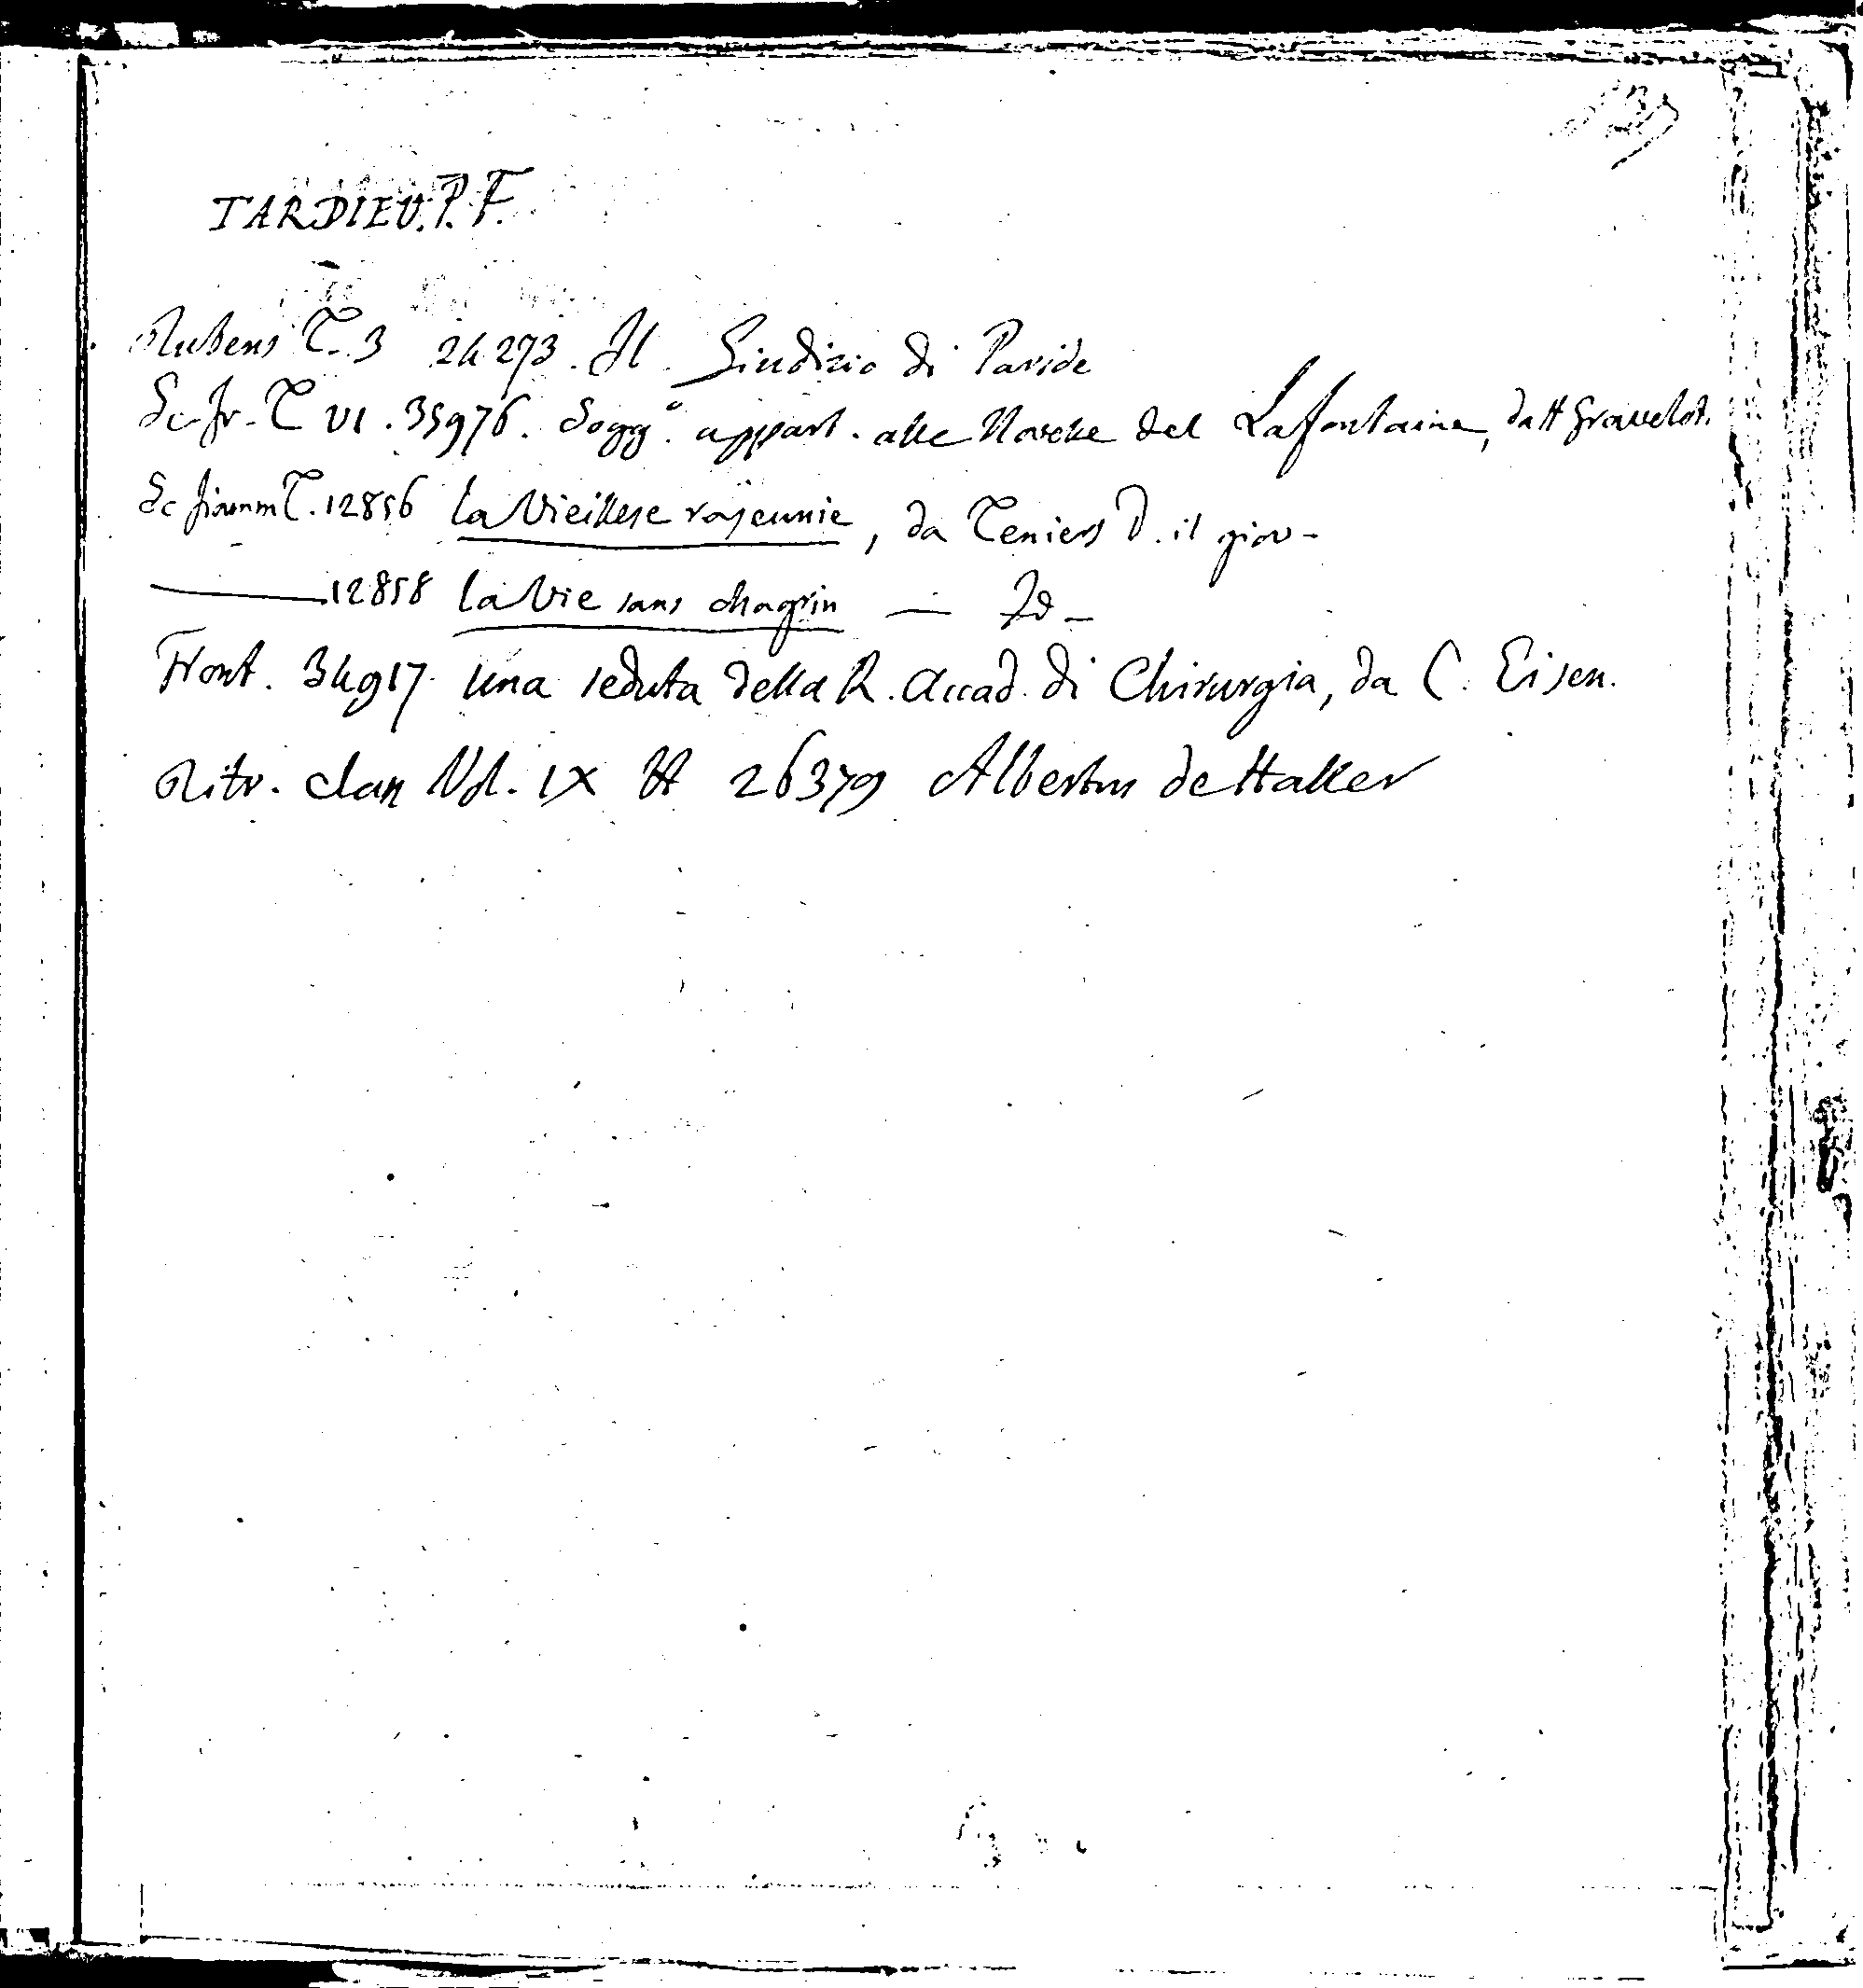 TARDIEU. P. F.
Rubens T. 3 24273. Il Giudizio di Paride
Sc. fr. T VI. 35976. Sogg.º appart. alle Novelle del Lafontaine, da H Gravelot.
Sc fiamm T. 12856 la Vieillese rajeunie, da Teniers D. il giov-
——— 12858 la Vie sans chagrin — Id -
Front. 34917. Una seduta della R. Accad. di Chirurgia, da C. Eisen.
Ritr. clan Vol. IX H 26379 Albertus de Haller